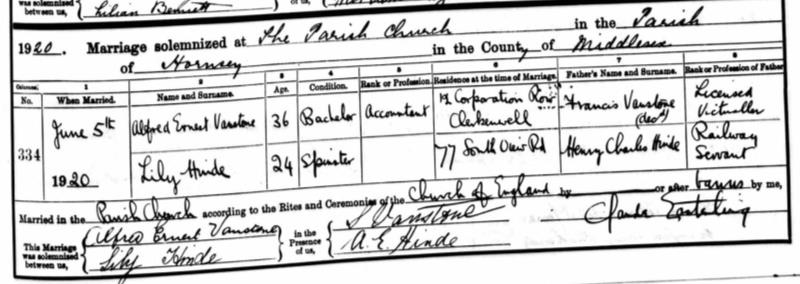 was solemnized
between us,
Lilian Bennett
1920. Marriage solemnized at The Parish Church in the Parish
of Hornsey in the County of Middlesex
Columns:— 1 2 3 4 5 6 7 8
No. When Married. Name and Surname. Age. Condition. Rank or Profession. Residence at the time of Marriage. Father's Name and Surname. Rank or Profession of Father
334
June 5th
1920
Alfred Ernest Vanstone 36 Bachelor Accountant Corporation Row Clerkenwell Francis Vanstone (decd) Licensed Victualler
Lily Hinde 24 Spinster 77 South View Rd Henry Charles Hinde Railway Servant
Married in the Parish Church according to the Rites and Ceremonies of the Church of England by or after banns by me,
This Marriage
was solemnized
between us,
Alfred Ernest Vanstone
Lily Hinde
in the
Presence
of us,
Vanstone
A. E. Hinde